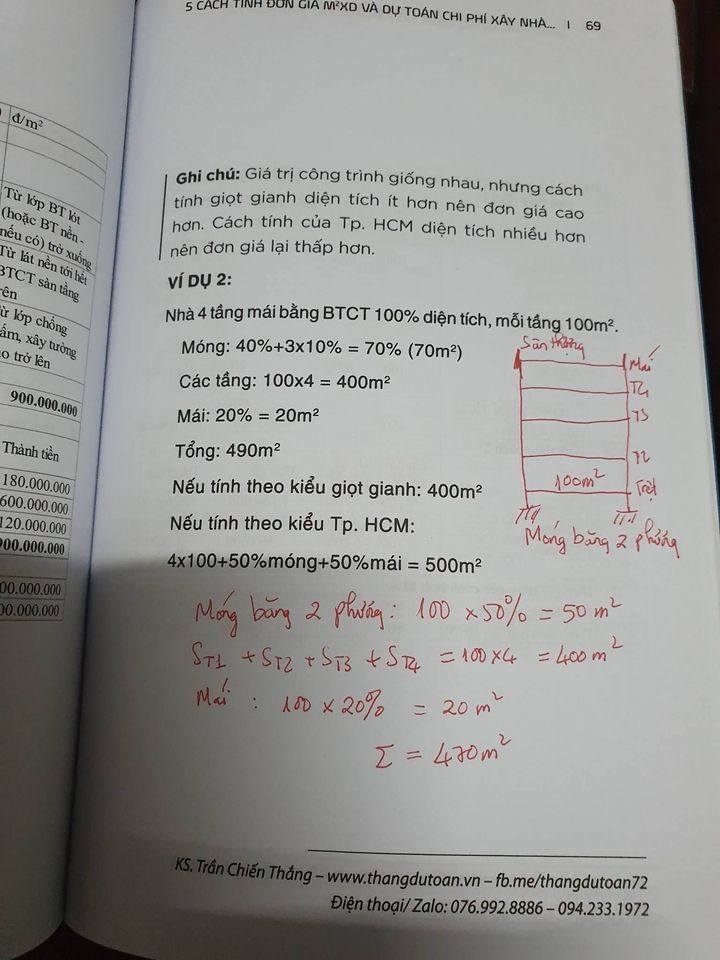 5 CÁCH TÍNH ĐƠN GIÁ M²XD VÀ DỰ TOÁN CHI PHÍ XÂY NHÀ... | 69
đ/m²
Từ lớp BT lót
(hoặc BT nền -
nếu có) trở xuống
Từ lát nền tới hết
BTCT sàn tầng
trên
Từ lớp chống
thấm, xây tường
trở lên
900.000.000
Thành tiền
180.000.000
600.000.000
120.000.000
900.000.000
00.000.000
00.000.000
Ghi chú: Giá trị công trình giống nhau, nhưng cách
tính giọt gianh diện tích ít hơn nên đơn giá cao
hơn. Cách tính của Tp. HCM diện tích nhiều hơn
nên đơn giá lại thấp hơn.
VÍ DỤ 2:
Nhà 4 tầng mái bằng BTCT 100% diện tích, mỗi tầng 100m².
Móng: 40%+3x10% = 70% (70m²)
Các tầng: 100x4 = 400m²
Mái: 20% = 20m²
Tổng: 490m²
Nếu tính theo kiểu giọt gianh: 400m²
Nếu tính theo kiểu Tp. HCM:
4x100+50%móng+50%mái = 500m²
Sân thượng
Mái
T4
T3
T2
100m²
Trệt
Móng băng 2 phương
Móng băng 2 phương: 100 x 50% = 50 m²
ST1 + ST2 + ST3 + ST4 = 100x4 = 400m²
Mái : 100 x 20% = 20 m²
Σ = 470m²
KS. Trần Chiến Thắng – www.thangdutoan.vn – fb.me/thangdutoan72
Điện thoại/ Zalo: 076.992.8886 – 094.233.1972